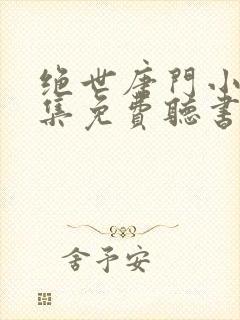 绝世唐門小
集免費聽書
舍予安